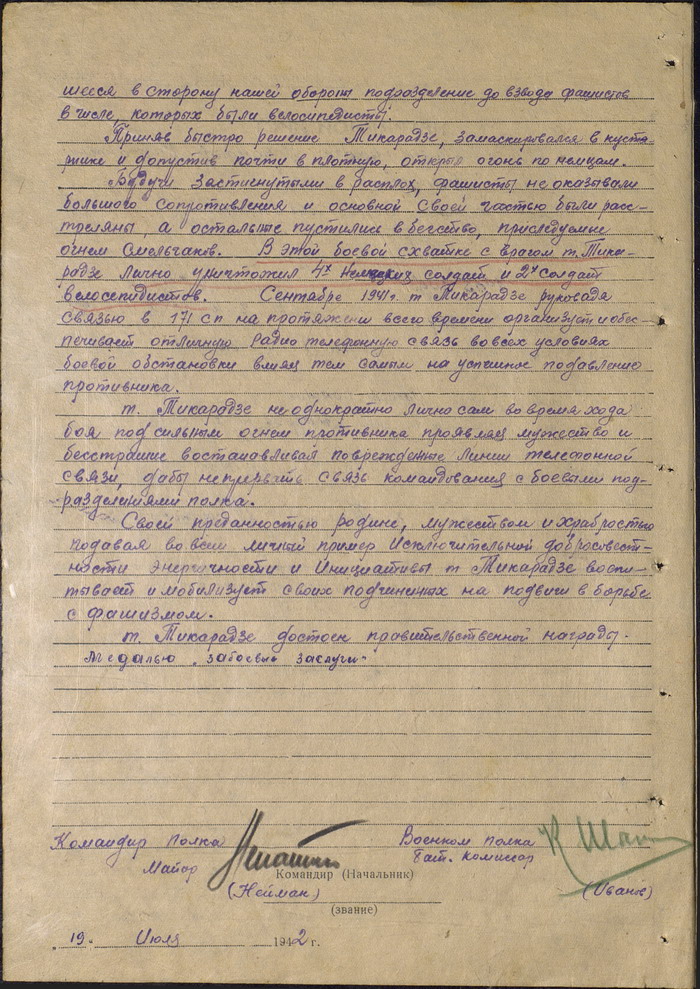 шееся в сторону нашей обороны подразделение до взвода фашистов
в числе, которых были велосипедисты.
Приняв быстро решение Тикарадзе, замаскировался в куста-
рнике и допустив почти в плотную, открыл огонь по немцам.
Будучи застигнутыми в расплох, фашисты не оказывали
большого сопротивления и основной своей частью были расс-
треляны, а остальные пустились в бегство, приследуемые
огнем смельчаков. В этой боевой схватке с врагом т. Тика-
радзе лично уничтожил 4х немецких солдат и 2х солдат
велосепидистов. Сентябре 1941г. т Тикарадзе руководя
связью в 171 сп на протяжени всего времени организует и обес-
печивает отличную радио телефонную связь во всех условиях
боевой обстановки влияя тем самым на успешное подавление
противника.
т. Тикарадзе неоднократно лично сам во время хода
боя под сильным огнем противника проявляя мужество и
бесстрашие востанавливал поврежденые линии телефонной
связи, дабы непрервать связь командования с боевыми под-
разделениями полка.
Своей преданностью родине, мужеством и храбростью
подавая во всем личный пример исключительной добросовест-
ности энергичности и инициативы т Тикарадзе воспи-
тывает и мобилизует своих подчиненых на подвиги в борьбе
с фашизмом.
т. Тикарадзе достоен правительственной награды.
Медалью „за боевые заслуги"
Командир полка Военком полка
Майор Бат. Комиссар
Командир (Начальник)
(Нейман) (Иванов)
(звание)
19. Июля 1942 г.